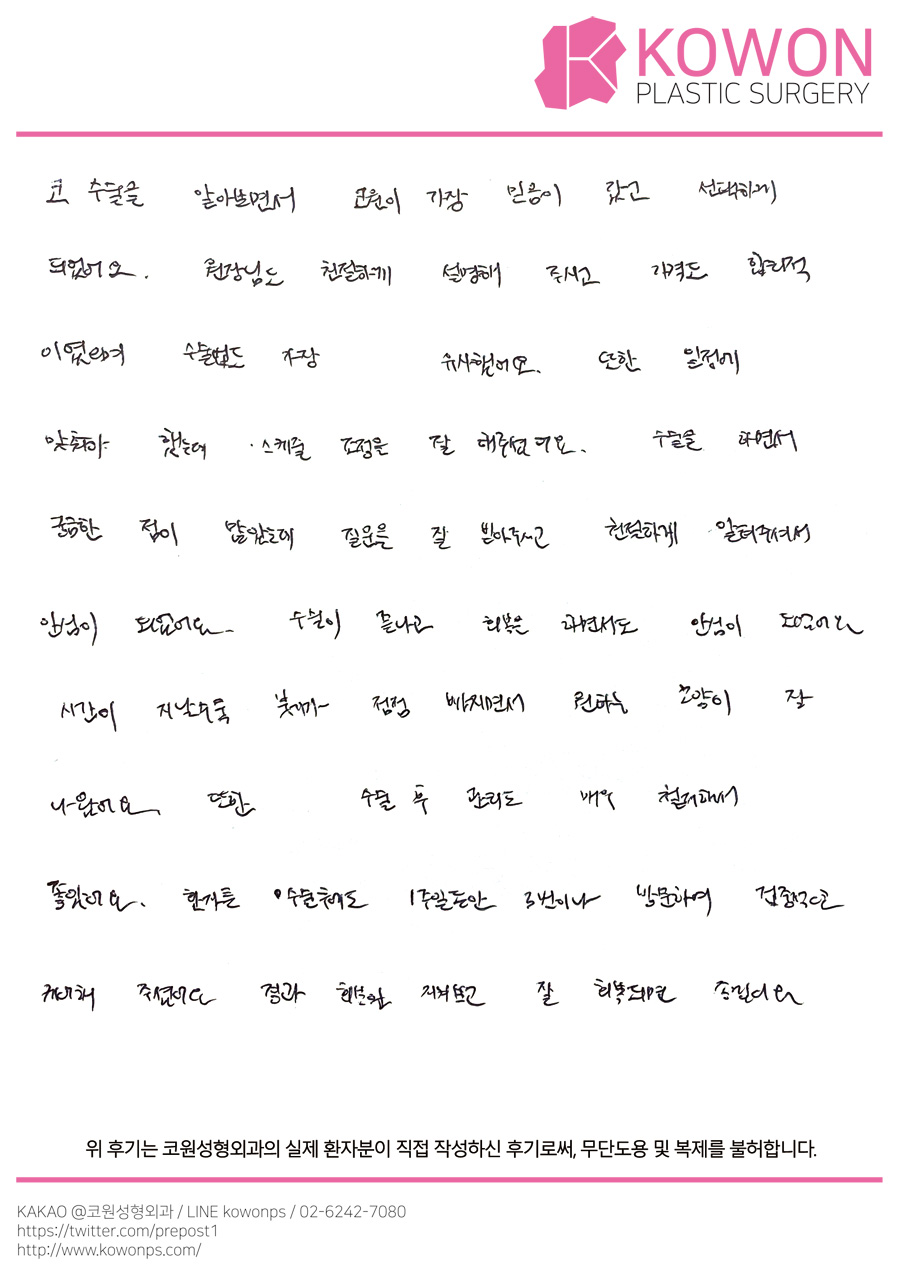 KOWON
PLASTIC SURGERY
코 수술을 알아보면서 코원이 가장 믿음이 갔고 선택하게
되었어요. 원장님도 친절하게 설명해 주시고 가격도 합리적
이였으며 수술법도 가장 유사했어요. 또한 일정에
맞춰야 했는데 스케줄 조정을 잘 해주셨어요. 수술을 하면서
궁금한 점이 많았는데 질문을 잘 받아주시고 친절하게 알려주셔서
안심이 되었어요. 수술이 끝나고 회복은 하면서도 안심이 되었어요
시간이 지날수록 붓기가 점점 빠지면서 원하는 모양이 잘
나왔어요. 또한 수술 후 관리도 매우 철저해서
좋았어요. 환자를 수술후에도 1주일동안 3번이나 방문하여 집중적으로
케어해 주셨어요 경과 지켜보고 잘 회복되면 좋겠어요
위 후기는 코원성형외과의 실제 환자분이 직접 작성하신 후기로써, 무단도용 및 복제를 불허합니다.
KAKAO @코원성형외과 / LINE kowonps / 02-6242-7080
https://twitter.com/prepost1
http://www.kowonps.com/